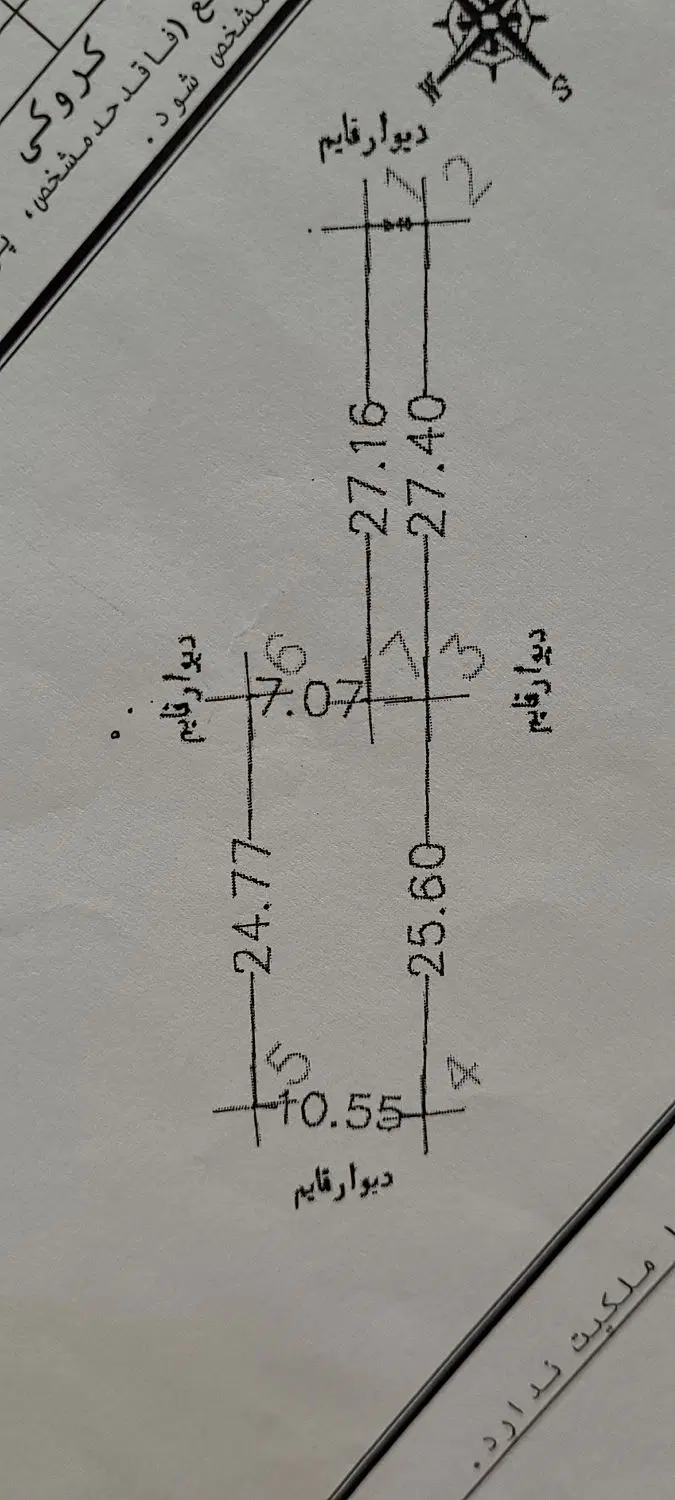 کروکی
ع (فاقد حد مشخص،
مشخص شود.
W
S
دیوار قایم
1
2
27.16
27.40
دیوار قایم
6
7.07
7
3
دیوار قایم
24.77
25.60
5
4
10.55
دیوار قایم
ملکیت ندارد.